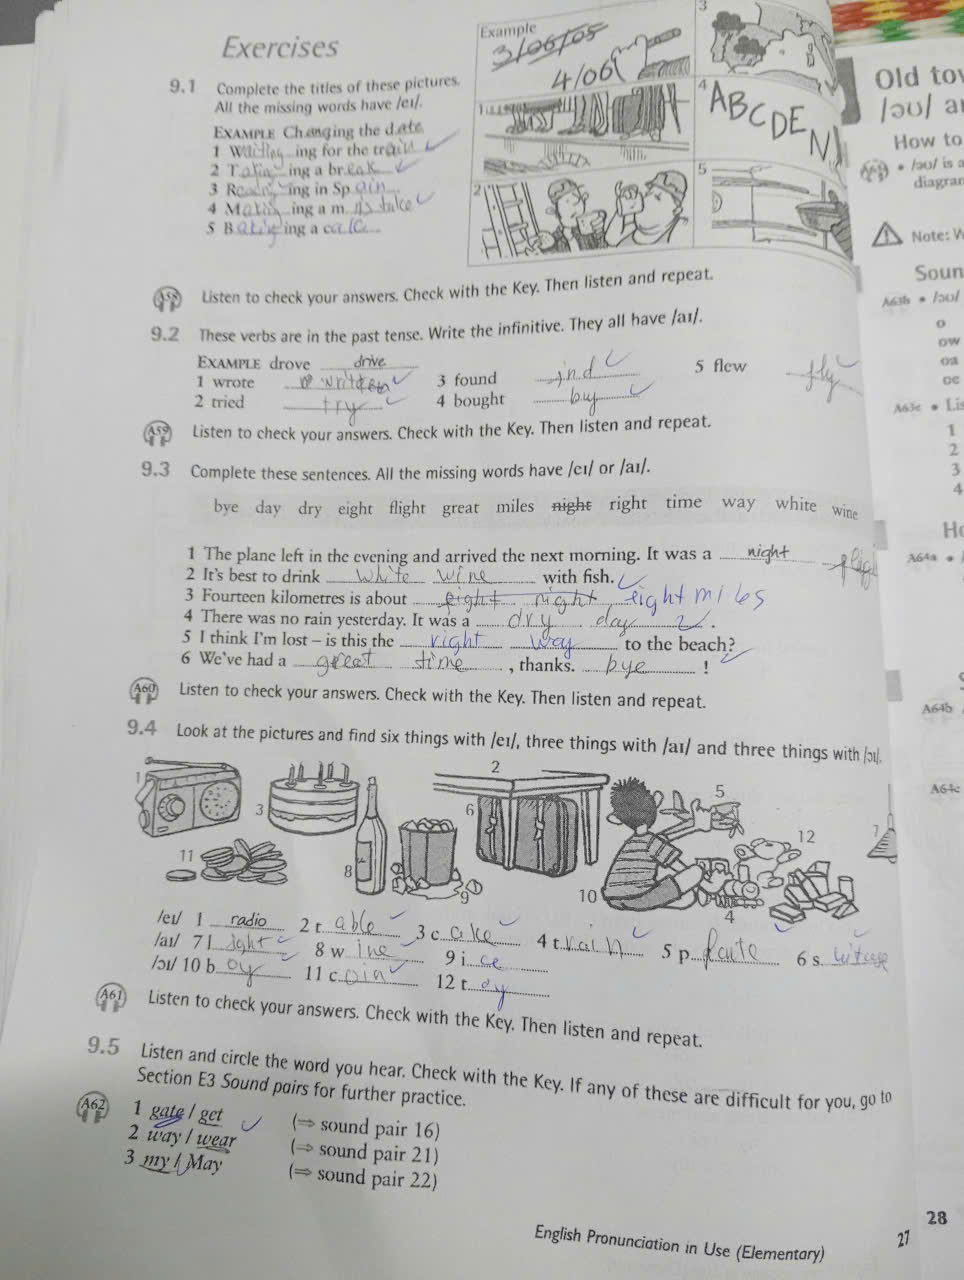 Exercises
9.1 Complete the titles of these pictures.
All the missing words have /eɪ/.
EXAMPLE Changing the date
1 Waiting ing for the train
2 Taking ing a break
3 R ing in Spain
4 Making ing a mistake
5 Baking ing a cake
Example
3/06/05
4/06/
1
2
3
4
ABCDEN
5
A58 Listen to check your answers. Check with the Key. Then listen and repeat.
9.2 These verbs are in the past tense. Write the infinitive. They all have /aɪ/.
EXAMPLE drove drive
1 wrote
2 tried try
3 found find
4 bought buy
5 flew fly
A59 Listen to check your answers. Check with the Key. Then listen and repeat.
9.3 Complete these sentences. All the missing words have /eɪ/ or /aɪ/.
bye day dry eight flight great miles night right time way white wine
1 The plane left in the evening and arrived the next morning. It was a night
2 It's best to drink white wine with fish.
3 Fourteen kilometres is about eight night eight miles
4 There was no rain yesterday. It was a dry day .
5 I think I'm lost – is this the right way to the beach?
6 We've had a great time , thanks. bye !
A60 Listen to check your answers. Check with the Key. Then listen and repeat.
9.4 Look at the pictures and find six things with /eɪ/, three things with /aɪ/ and three things with /ɔɪ/.
1
2
3
4
5
6
7
8
9
10
11
12
/eɪ/ 1 radio 2 table 3 cake 4 train 5 p 6 s
/aɪ/ 7 light 8 wine 9 ice
/ɔɪ/ 10 boy 11 coin 12 toy
A61 Listen to check your answers. Check with the Key. Then listen and repeat.
9.5 Listen and circle the word you hear. Check with the Key. If any of these are difficult for you, go to
Section E3 Sound pairs for further practice.
A62 1 gate / get (⇒ sound pair 16)
2 way / wear (⇒ sound pair 21)
3 my / May (⇒ sound pair 22)
English Pronunciation in Use (Elementary) 27
Old
/əʊ/
How to
/əʊ/ is a
Note:
A63b /əʊ/
o
ow
oa
oe
A63c
1
2
3
4
A64a
A64b
A64c
28